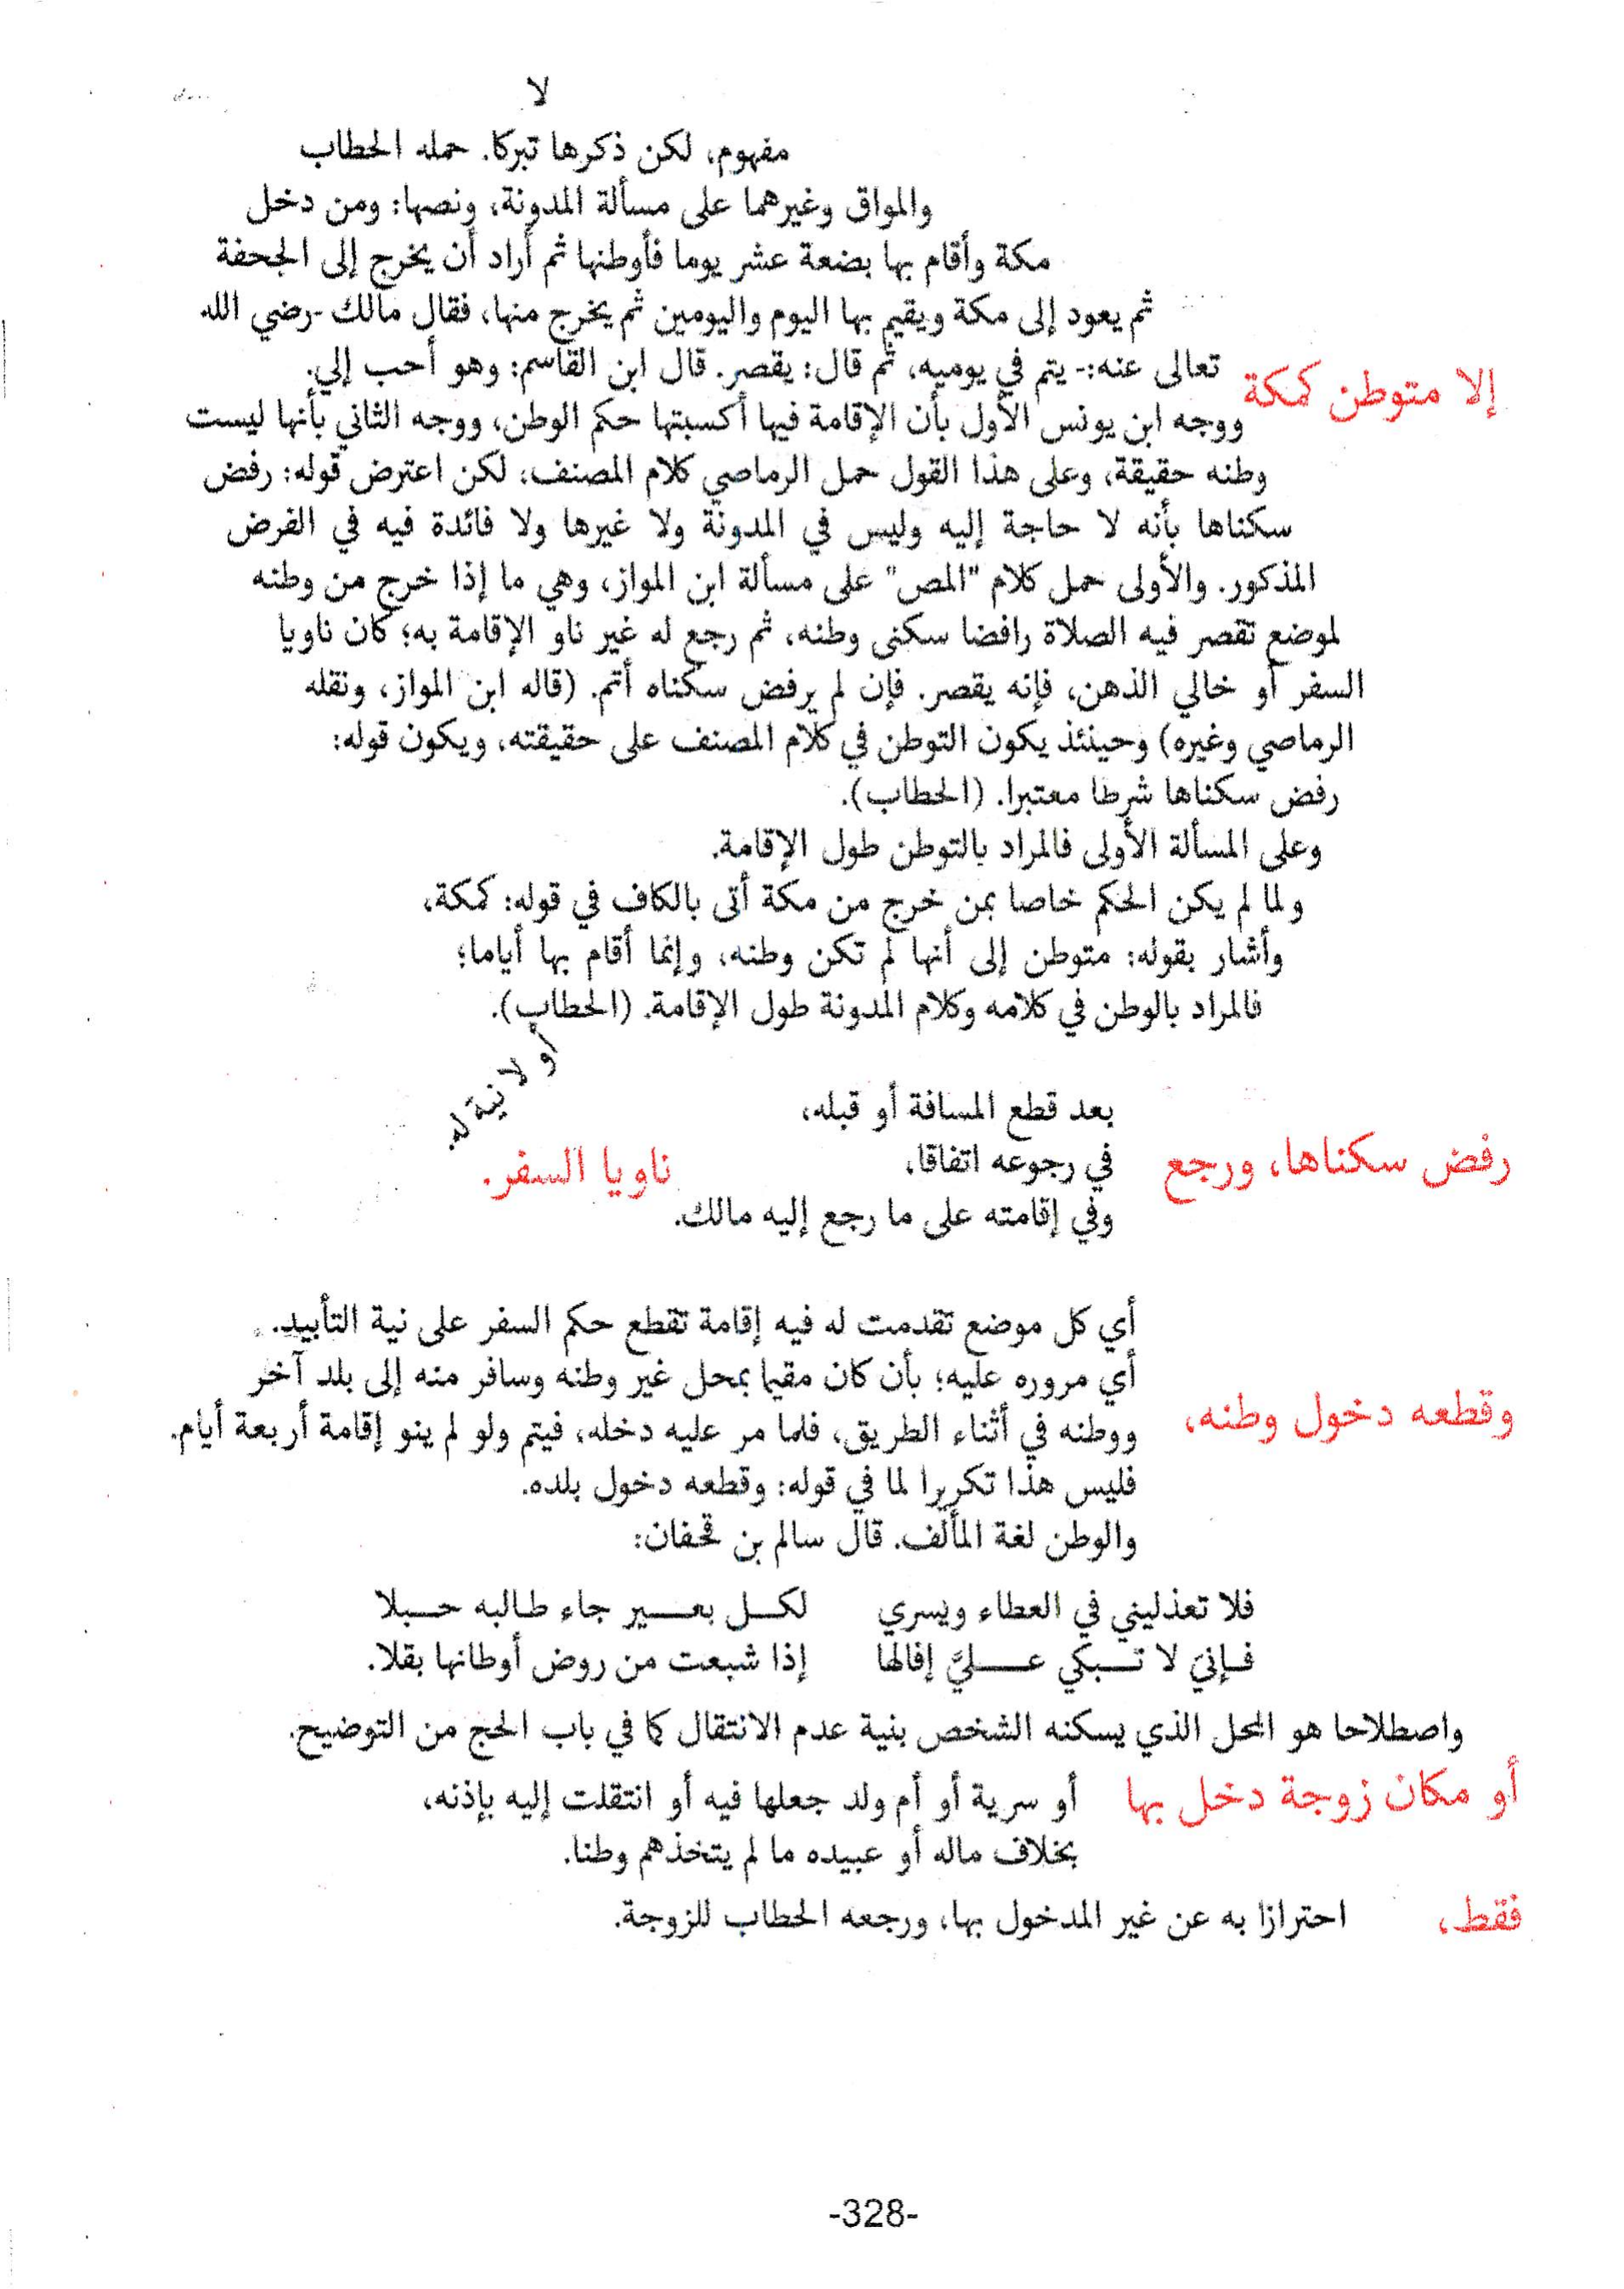 لا
مفهوم، لكن ذكرها تبركا. حمله الحطاب
والمواق وغيرهما على مسألة المدونة، ونصها: ومن دخل
مكة وأقام بها بضعة عشر يوما فأوطنها ثم أراد أن يخرج إلى الجحفة
ثم يعود إلى مكة ويقيم بها اليوم واليومين ثم يخرج منها، فقال مالك -رضي الله
إلا متوطن كمكة تعالى عنه:- يتم في يوميه، ثم قال: يقصر. قال ابن القاسم: وهو أحب إلي.
ووجه ابن يونس الأول بأن الإقامة فيها أكسبتها حكم الوطن، ووجه الثاني بأنها ليست
وطنه حقيقة، وعلى هذا القول حمل الرماصي كلام المصنف، لكن اعترض قوله: رفض
سكناها بأنه لا حاجة إليه وليس في المدونة ولا غيرها ولا فائدة فيه في الفرض
المذكور. والأولى حمل كلام "المص" على مسألة ابن المواز، وهي ما إذا خرج من وطنه
لموضع تقصر فيه الصلاة رافضا سكنى وطنه، ثم رجع له غير ناو الإقامة به؛ كان ناويا
السفر أو خالي الذهن، فإنه يقصر. فإن لم يرفض سكناه أتم. (قاله ابن المواز، ونقله
الرماصي وغيره) وحينئذ يكون التوطن في كلام المصنف على حقيقته، ويكون قوله:
رفض سكناها شرطا معتبرا. (الحطاب).
وعلى المسألة الأولى فالمراد بالتوطن طول الإقامة.
ولما لم يكن الحكم خاصا بمن خرج من مكة أتى بالكاف في قوله: كمكة،
وأشار بقوله: متوطن إلى أنها لم تكن وطنه، وإنما أقام بها أياما؛
فالمراد بالوطن في كلامه وكلام المدونة طول الإقامة. (الحطاب).
بعد قطع المسافة أو قبله،
رفض سكناها، ورجع في رجوعه اتفاقا، ناويا السفر. أو لا نية له.
وفي إقامته على ما رجع إليه مالك.
أي كل موضع تقدمت له فيه إقامة تقطع حكم السفر على نية التأبيد.
أي مروره عليه؛ بأن كان مقيما بمحل غير وطنه وسافر منه إلى بلد آخر
وقطعه دخول وطنه، ووطنه في أثناء الطريق، فلما مر عليه دخله، فيتم ولو لم ينو إقامة أربعة أيام.
فليس هذا تكريرا لما في قوله: وقطعه دخول بلده.
والوطن لغة المألف. قال سالم بن قحفان:
فلا تعذليني في العطاء ويسري لكل بعير جاء طالبه حبلا
فإني لا تبكي عليَّ إفالها إذا شبعت من روض أوطانها بقلا.
واصطلاحا هو المحل الذي يسكنه الشخص بنية عدم الانتقال كما في باب الحج من التوضيح.
أو مكان زوجة دخل بها أو سرية أو أم ولد جعلها فيه أو انتقلت إليه بإذنه،
بخلاف ماله أو عبيده ما لم يتخذهم وطنا.
فقط، احترازا به عن غير المدخول بها، ورجعه الحطاب للزوجة.
-328-